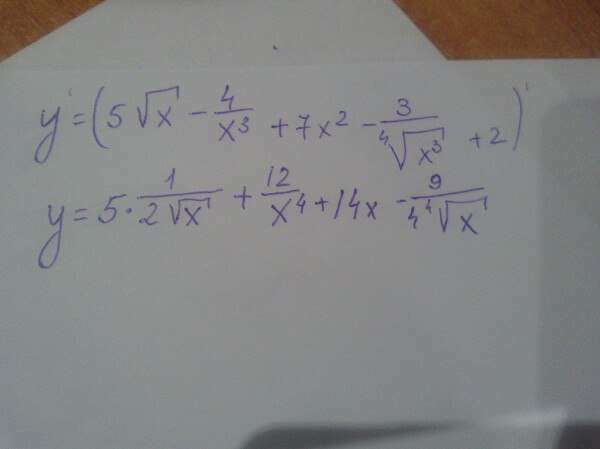 y' = (5√x - 4/x³ + 7x² - 3/⁴√x³ + 2)'
y = 5 · 1/2√x + 12/x⁴ + 14x - 9/4⁴√x